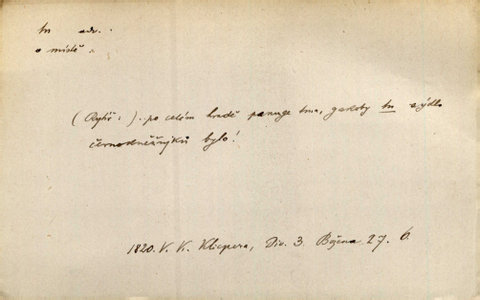 tu adv.
o místě
(Rytíř:) po celém hradě panuge tma, gakoby tu sýdlo
černokněžnjků bylo!
1820. V. K. Klicpera, Div. 3. Božena 27. 6.